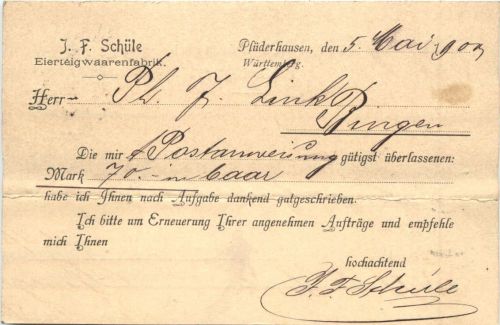 J. F. Schüle
Eierteigwaarenfabrik.
Plüderhausen, den 5. Mai 190
Württembg.
Herr Ph. J. Link
Bingen
Die mir p Postanweisung gütigst überlassenen:
Mark 70.- in baar
habe ich Ihnen nach Aufgabe dankend gutgeschrieben.
Ich bitte um Erneuerung Ihrer angenehmen Aufträge und empfehle
mich Ihnen
hochachtend
J. F. Schüle